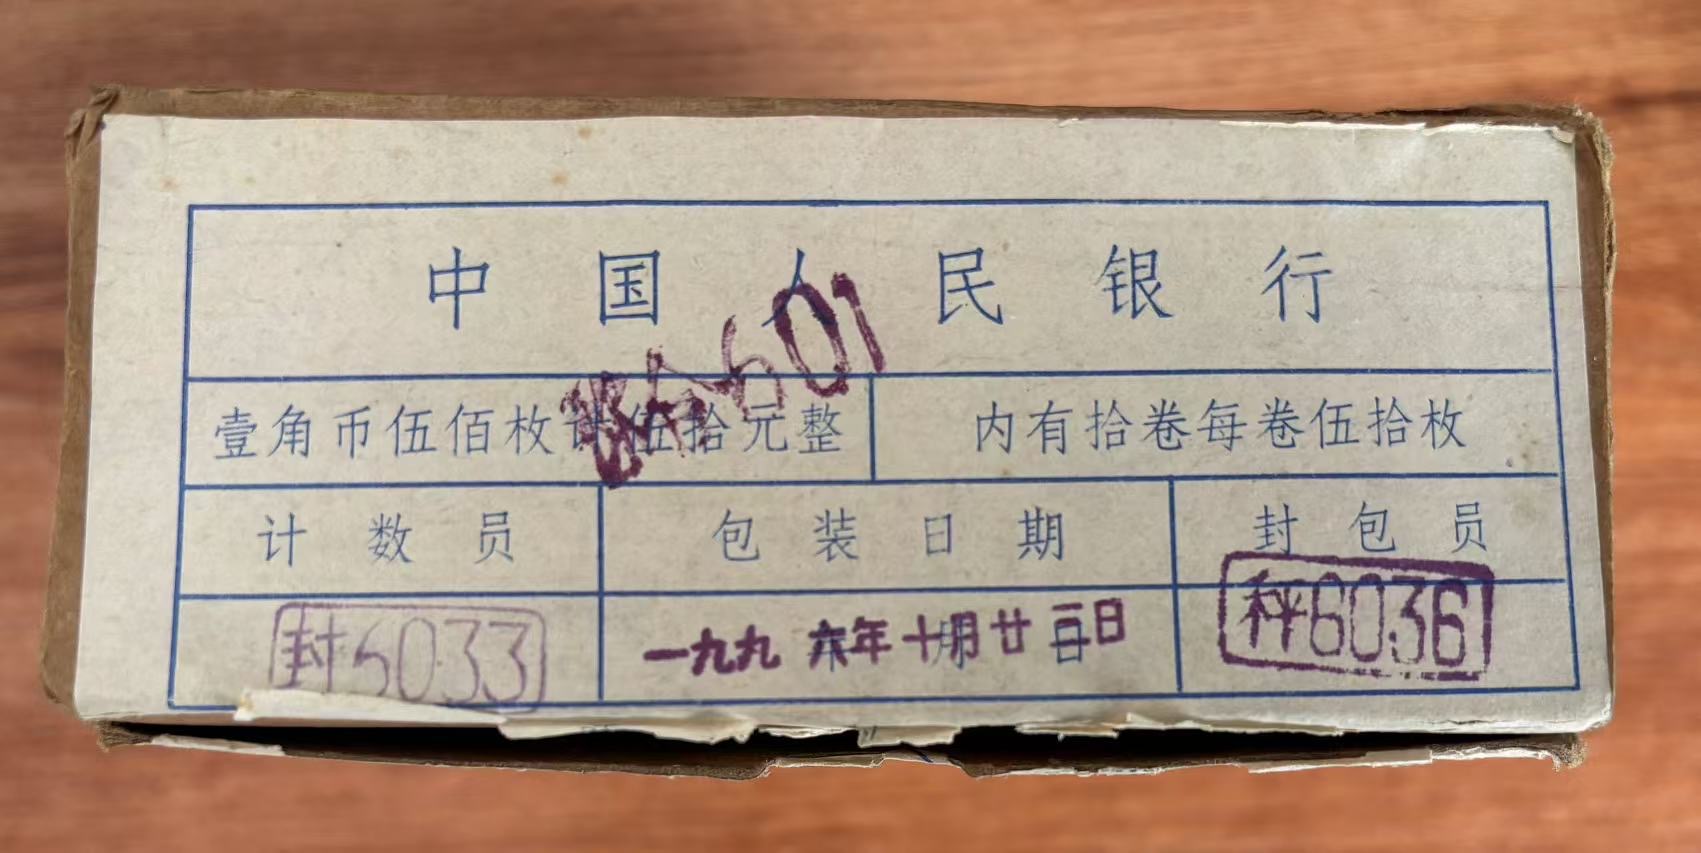 中国人民银行
壹角币伍佰枚计伍拾元整 内有拾卷每卷伍拾枚
计数员 包装日期 封包员
封6033 一九九六年十月廿二日 秤6036